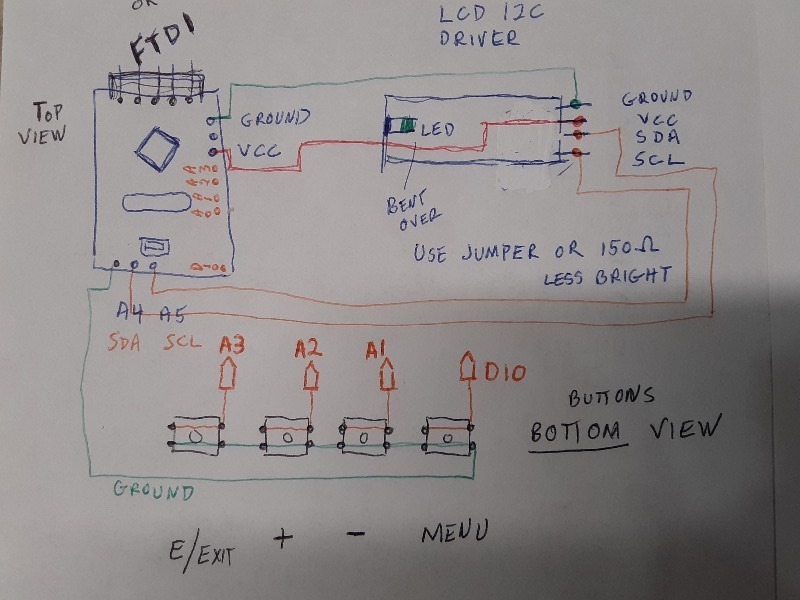 OR
FTDI
LCD I2C
DRIVER
TOP
VIEW
GROUND
VCC
LED
BENT
OVER
GROUND
VCC
SDA
SCL
A3
A2
A1
A0
USE JUMPER OR 150Ω
LESS BRIGHT
A4 A5
SDA SCL
A3
A2
A1
D10
BUTTONS
BOTTOM VIEW
GROUND
E/EXIT + - MENU